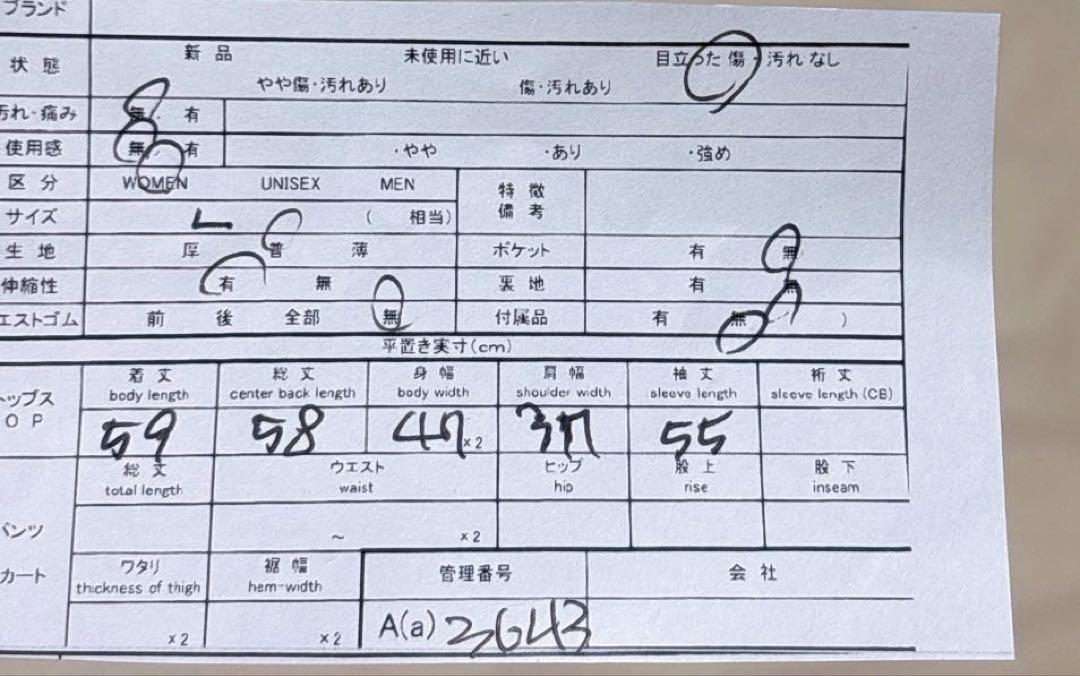 ブランド
状態 新品 未使用に近い 目立った傷・汚れなし
やや傷・汚れあり 傷・汚れあり
汚れ・痛み 無・有
使用感 無・有 ・やや ・あり ・強め
区分 WOMEN UNISEX MEN 特徴
備考
サイズ L ( 相当)
生地 厚 普 薄 ポケット 有 無
伸縮性 有 無 裏地 有 無
エストゴム 前 後 全部 無 付属品 有 無 )
平置き実寸(cm)
着丈 総丈 身幅 肩幅 袖丈 裄丈
トップス body length center back length body width shoulder width sleeve length sleeve length (CB)
OP 59 58 47×2 37 55
総丈 ウエスト ヒップ 股上 股下
total length waist hip rise inseam
パンツ ~ ×2
カート ワタリ 裾幅 管理番号 会社
thickness of thigh hem-width
×2 ×2 A(a) 3643